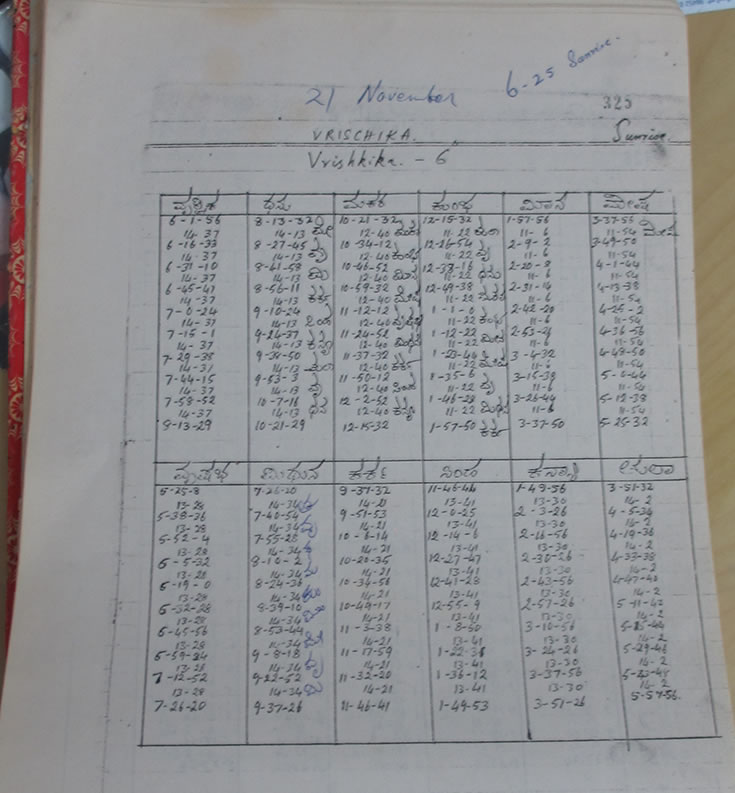 21 November 6-25 Sunrise.
325
VRISCHIKA. Sunrise.
Vrishkika. - 6
ವೃಶ್ಚಿಕ ಧನು ಮಕರ ಕುಂಭ ಮೀನ ಮೇಷ
6-1-56 8-13-32 10-21-32 12-15-32 1-57-56 3-37-56
14-37 14-13 12-40 ಮಕರ 11-22 ತುಲಾ 11-6 11-54 ಮೇಷ
6-16-33 8-27-45 10-34-12 12-26-54 2-9-2 3-49-50
14-37 14-13 12-40 ಕುಂಭ 11-22 11-6 11-54
6-31-10 8-41-58 10-46-52 12-38-16 2-20-8 4-1-44
14-37 14-13 12-40 ಮೀನ 11-22 ಧನು 11-6 11-54
6-45-47 8-56-11 10-59-32 12-49-38 2-31-14 4-13-38
14-37 14-13 ಕರ್ಕ 12-40 ಮೇಷ 11-22 ಮಕರ 11-6 11-54
7-0-24 9-10-24 11-12-12 1-1-0 2-42-20 4-25-2
14-37 14-13 ಸಿಂಹ 12-40 ವೃಷಭ 11-22 ಕುಂಭ 11-6 11-54
7-15-1 9-24-37 11-24-52 1-12-22 2-53-26 4-36-56
14-37 14-13 ಕನ್ಯಾ 12-40 ಮಿಥುನ 11-22 ಮೀನ 11-6 11-54
7-29-38 9-38-50 11-37-32 1-23-46 3-4-32 4-48-50
14-37 14-13 ತುಲಾ 12-40 ಕರ್ಕ 11-22 ಮೇಷ 11-6 11-54
7-44-15 9-53-3 11-50-12 1-35-6 3-15-38 5-0-44
14-37 14-13 ವೃ 12-40 ಸಿಂಹ 11-22 ವೃ 11-6 11-54
7-58-52 10-7-16 12-2-52 1-46-28 3-26-44 5-12-38
14-37 14-13 ಧನು 12-40 ಕನ್ಯಾ 11-22 ಮಿಥುನ 11-6 11-54
8-13-29 10-21-29 12-15-32 1-57-50 ಕರ್ಕ 3-37-50 5-25-32
ವೃಷಭ ಮಿಥುನ ಕರ್ಕ ಸಿಂಹ ಕನ್ಯಾ ತುಲಾ
5-25-8 7-26-20 9-37-32 11-46-44 1-49-56 3-51-32
13-28 14-34 14-21 13-41 13-30 14-2
5-38-36 7-40-54 9-51-53 12-0-25 2-3-26 4-5-34
13-28 14-34 14-21 13-41 13-30 14-2
5-52-4 7-55-28 10-6-14 12-14-6 2-16-56 4-19-36
13-28 14-34 14-21 13-41 13-30 14-2
6-5-32 8-10-2 10-20-35 12-27-47 2-30-26 4-33-38
13-28 14-34 14-21 13-41 13-30 14-2
6-19-0 8-24-36 10-34-56 12-41-28 2-43-56 4-47-40
13-28 14-34 14-21 13-41 13-30 14-2
6-32-28 8-39-10 10-49-17 12-55-9 2-57-26 5-11-42
13-28 14-34 14-21 13-41 13-30 14-2
6-45-56 8-53-44 11-3-38 1-8-50 3-10-56 5-15-44
13-28 14-34 14-21 13-41 13-30 14-2
6-59-24 9-8-18 11-17-59 1-22-31 3-24-26 5-29-46
13-28 14-34 14-21 13-41 13-30 14-2
7-12-52 9-22-52 11-32-20 1-36-12 3-37-56 5-43-48
13-28 14-34 14-21 13-41 13-30 14-2
7-26-20 9-37-26 11-46-41 1-49-53 3-51-26 5-57-56